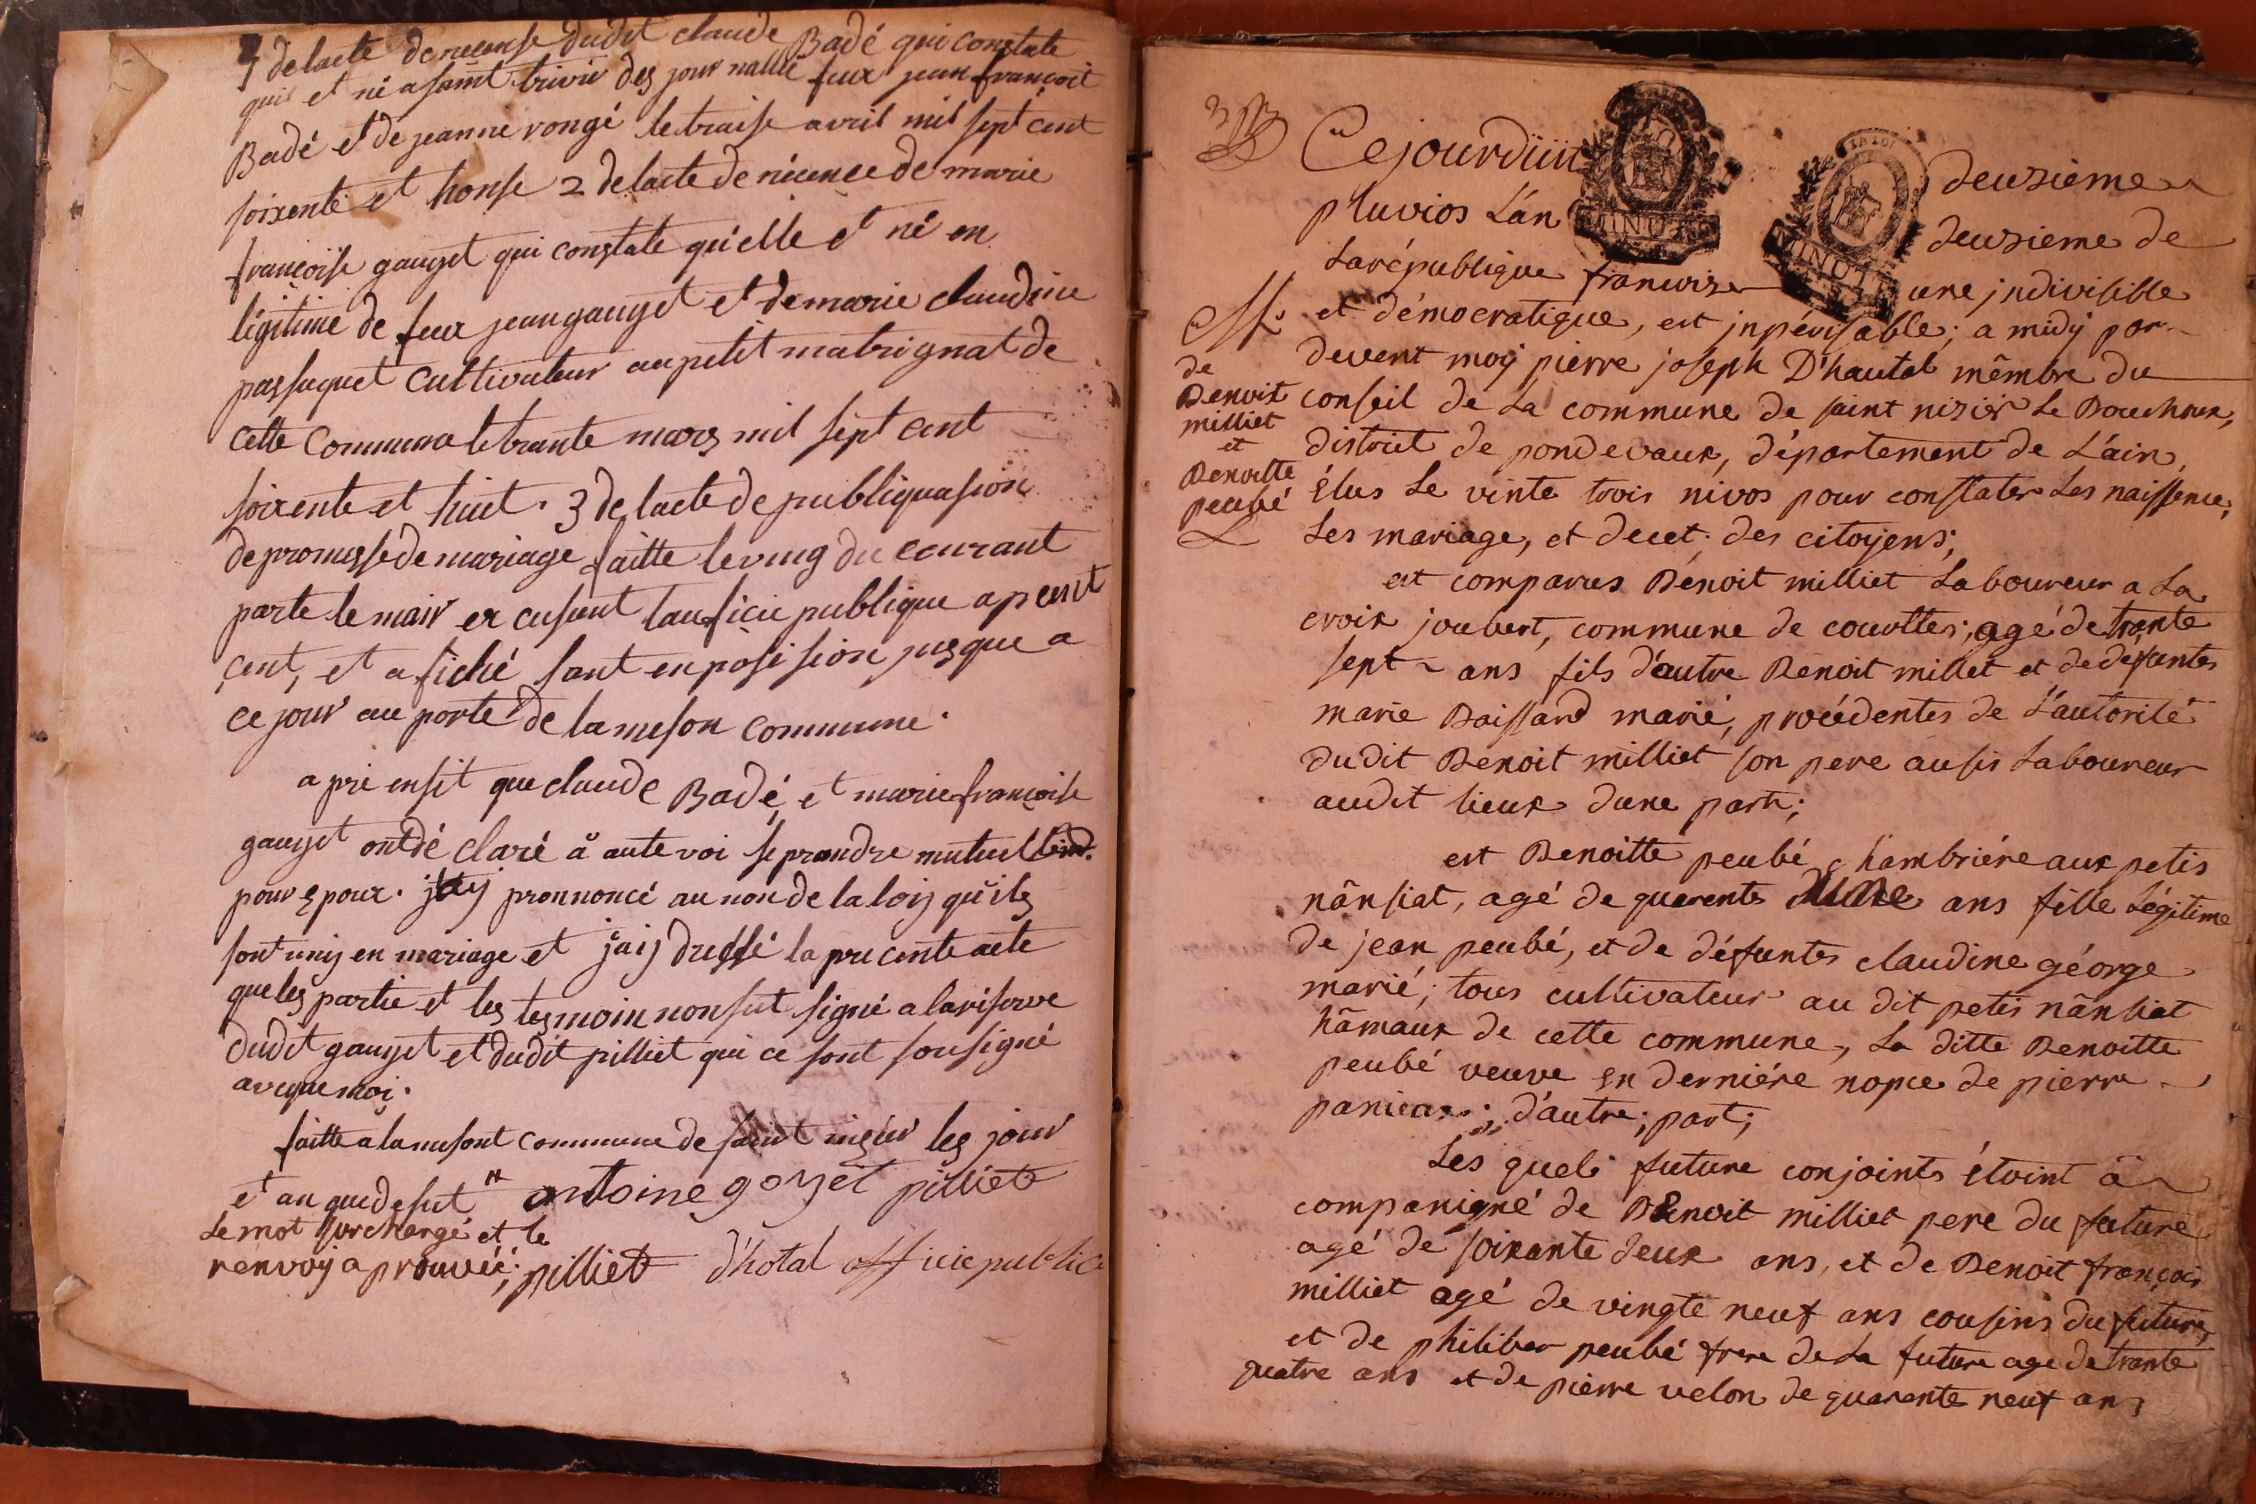 1 delacte de nécense dudit claude Badé qui constate
quil et né a saint trivié des jour nallié feux jean françoit
Badé et de jeanne rongé le traise avril mil sept cent
soixente et honse 2 delacte de nécence de marie
françoise gauyet qui constate qu'elle et né en
légitime de feux jean gauyet et de marie claudine
passaquet cultivateur au petit matrignat de
cette commune le trante mars mil sept cent
soixente et huit. 3 de lacte de publiquasion
de promesse de mariage faitte le ving du courant
parte le mair ex cusent laufície publique apcent
cent, et afiché sant enposision jusque a
ce jour au porte de la meson commune.
a pri ensit que claude Badé, et marie françoise
gauyet ont dé claré à aute voi se prandre mutuell
pour epoux. jay pronnoncé au non de la loij qu'ils
sont unis en mariage et j'aij dressé la pre cente acte
que les partie et les tesmoin nonsut signé a la réserve
dudit gauyet et dudit pilliet qui ce sont sousigné
avecque moi.
faitte a la mesont commune de saint nizier les jour
et an que desut antoine goyet pilliet
Le mot surchargé et le
renvoij aprouvéé; pilliet d'hotal officie public
Ce jourdüit deuzieme
pluvios L'an deuzieme de
La république francoize une jndivisible
et démocratique, est jnpérisable; a midÿ par
devent moÿ pierre joseph D'hautal mêmbre du
conseil de La commune de saint nizier Le Bouchoux,
district de pondevaux, département de L'áin,
Élus Le vinte trois nivos pour constater Les naissence,
Les mariage, et decet; des citoyens;
M.
de
Benoit
milliet
et
Benoitte
peubé
est comparus Benoit milliet Laboureur a La
croix joubert, commune de courttes; agé de trante
sept ans fils d'autre Benoit millet et de defuntes
marie Boissard marié, procédentes de L'autorité
dudit Benoit milliet son pere ausis Laboureur
audit lieux dune part;
est Benoitte peubé chambriére aux petis
nânsiat, agé de quarente ans fille Légitime
de jean peubé, et de défuntes claudine géorge
marié; tous cultivateur au dit petis nânsiat
hâmaux de cette commune, La ditte Benoitte
peubé veuve en derniére nopce de pierre
; d'autre; part;
Les quels future conjoints étoint à
companigné de Benoit milliet pere du future
agé de soixante deux ans, et de Benoit françois
milliet agé de vingte neuf ans cousins du future,
et de philiber peubé frere de La future age de trante
quatre ans et de pierre velon de quarente neuf ans